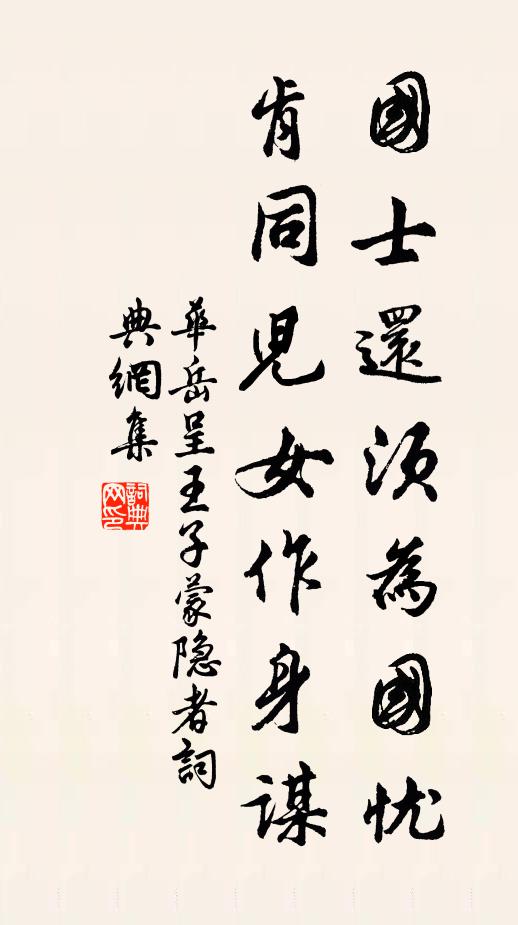 國士還須為國忧
肯同児女作身謀
華岳呈王子蒙隐者詞
典網集
詞典网印